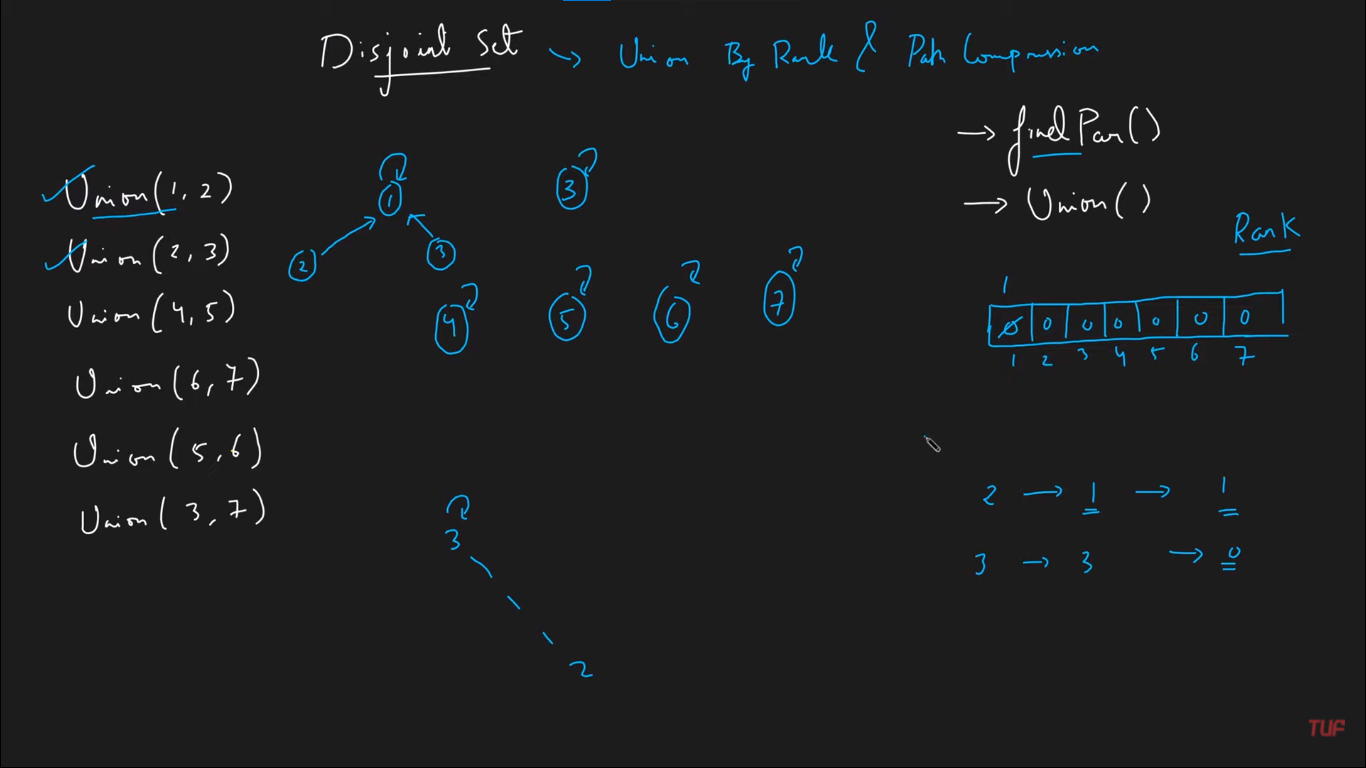 Disjoint Set → Union By Rank & Path Compression
→ findPar()
→ Union()
Union(1, 2)
Union(2, 3)
Union(4, 5)
Union(6, 7)
Union(5, 6)
Union(3, 7)
1
3
2
3
4
5
6
7
Rank
1
0 0 0 0 0 0 0
1 2 3 4 5 6 7
2 → 1 → 1
3 → 3 → 0
3
2
TUF